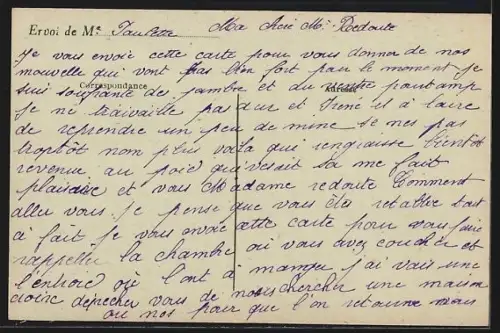 Envoi de Me Paulette Ma chère Me Redoute
Je vous envoie cette carte pour vous donner de nos
nouvelle qui vont pas bien fort pour le moment je
Correspondance Adresse
suis souffrante de jambre et du pourtamp
je ne travaille pas dur et René il a l'aire
de reprendre un peu de mine se nes pas
troptôt nom plus voila qui engraisse bientôt
revenu au poid qui pesait sa me fait
plaisire et vous Madame redoute Comment
aller vous. je pense que vous ête retablie tout
à fait je vous envoie cette carte pour vous faire
rappeller la chambre où vous avez coucher et
l'entrée où l'ont à manger j'ai vais une
doire depecher vous de nous chercher une maison
ou nos pour que l'on retourne